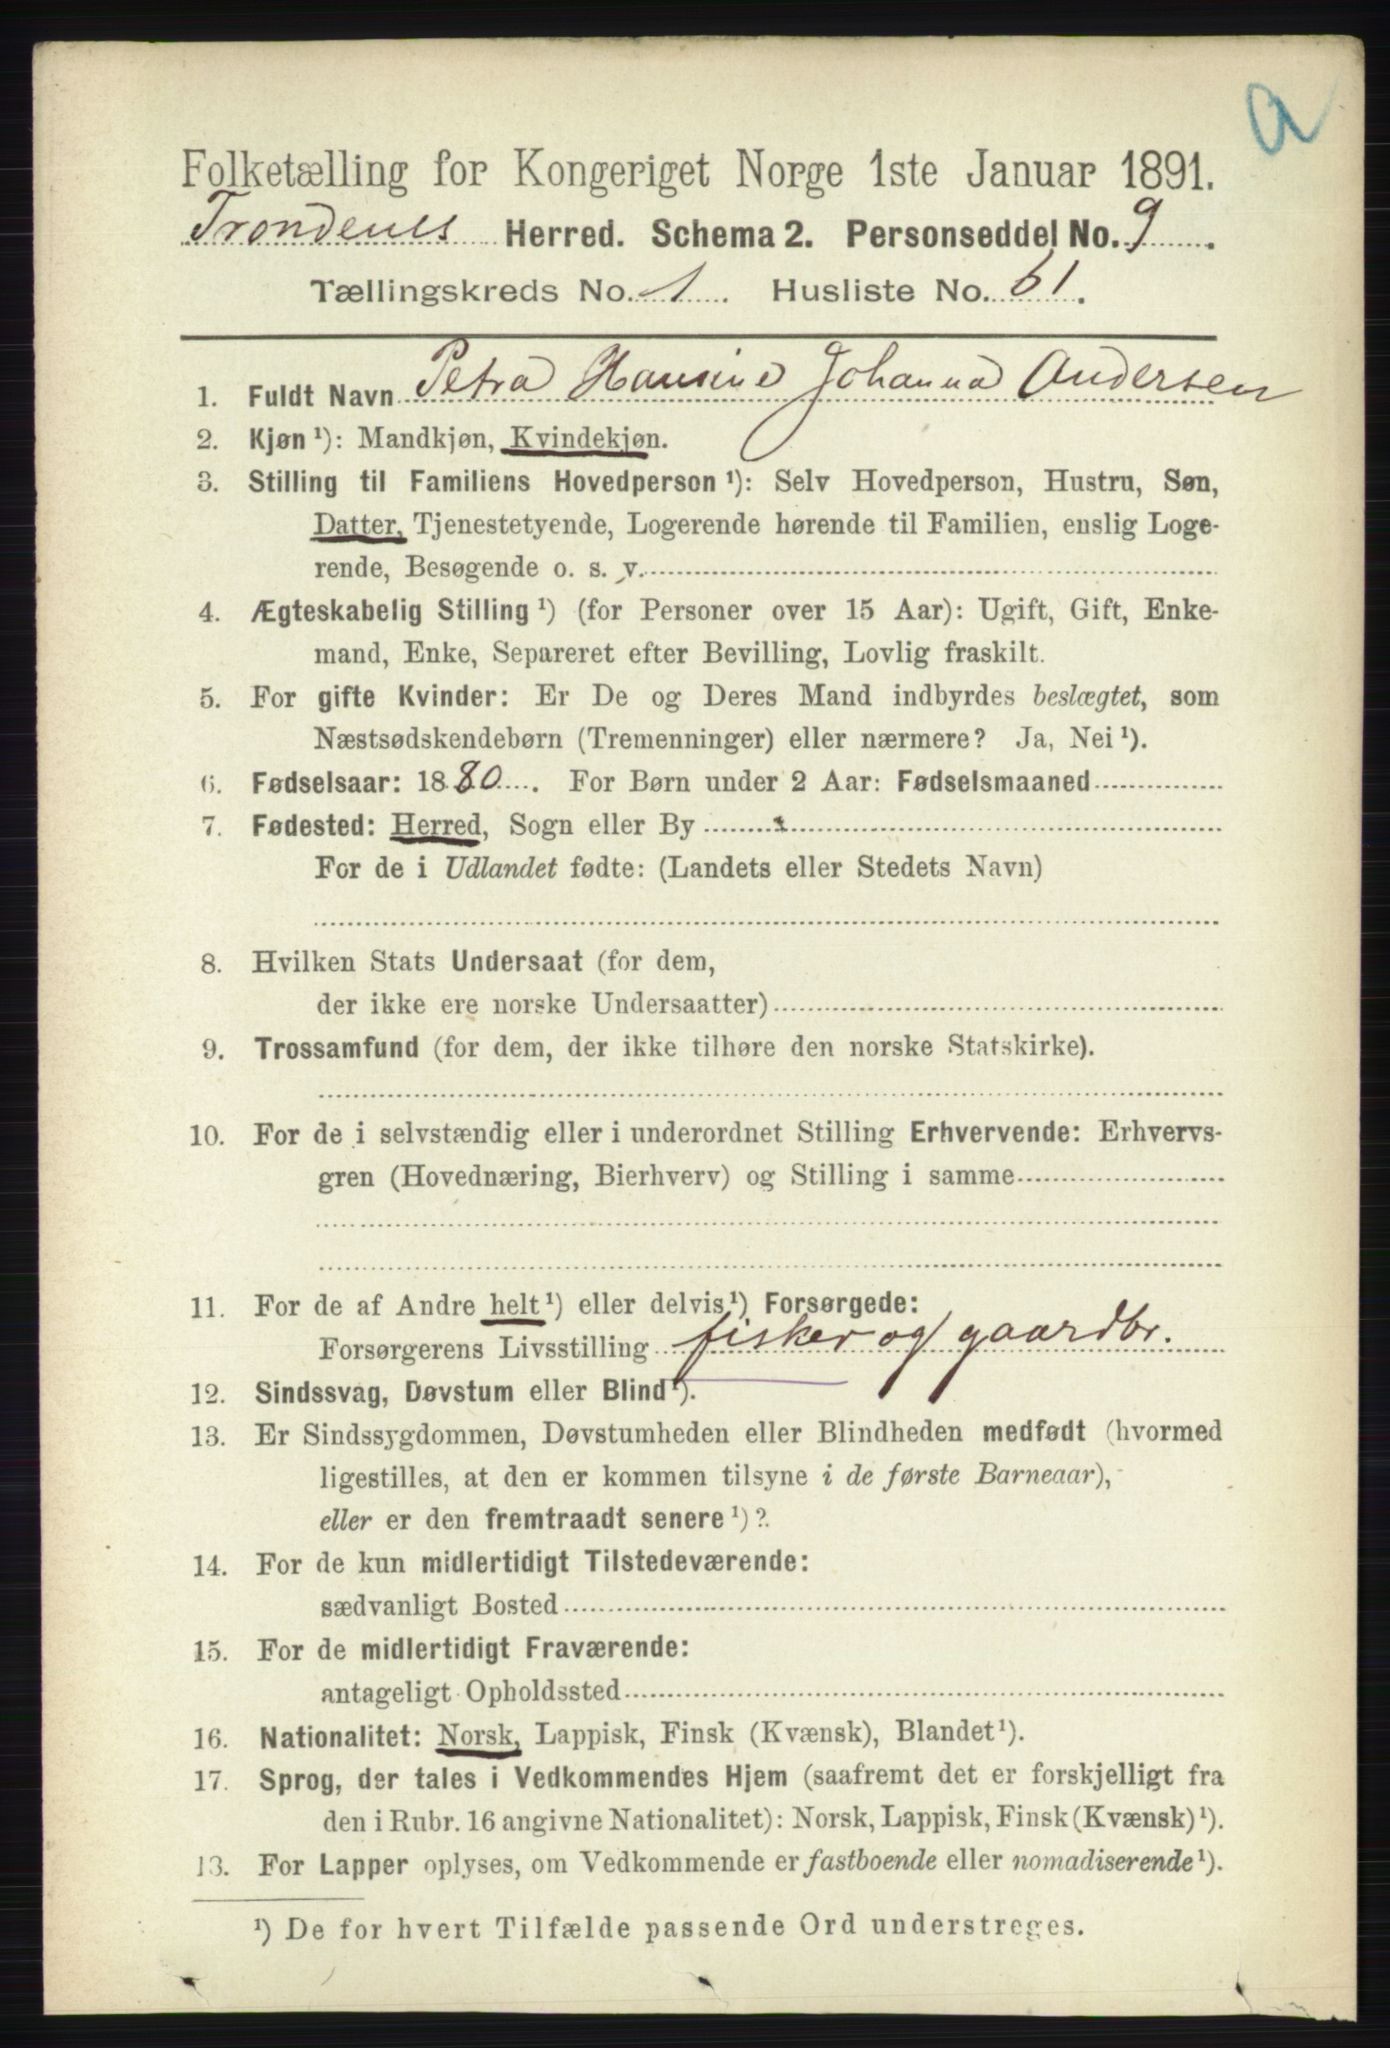 a
Folketælling for Kongeriget Norge 1ste Januar 1891.
Trondenes Herred. Schema 2. Personseddel No. 9.
Tællingskreds No. 1. Husliste No. 61.
1. Fuldt Navn Petra Hansine Johanna Andersen
2. Kjøn ¹): Mandkjøn, Kvindekjøn.
3. Stilling til Familiens Hovedperson ¹): Selv Hovedperson, Hustru, Søn,
Datter, Tjenestetyende, Logerende hørende til Familien, enslig Loge-
rende, Besøgende o. s. v.
4. Ægteskabelig Stilling ¹) (for Personer over 15 Aar): Ugift, Gift, Enke-
mand, Enke, Separeret efter Bevilling, Lovlig fraskilt.
5. For gifte Kvinder: Er De og Deres Mand indbyrdes beslægtet, som
Næstsødskendebørn (Tremenninger) eller nærmere? Ja, Nei ¹).
6. Fødselsaar: 1880. For Børn under 2 Aar: Fødselsmaaned
7. Fødested: Herred, Sogn eller By
For de i Udlandet fødte: (Landets eller Stedets Navn)
8. Hvilken Stats Undersaat (for dem,
der ikke ere norske Undersaatter)
9. Trossamfund (for dem, der ikke tilhøre den norske Statskirke).
10. For de i selvstændig eller i underordnet Stilling Erhvervende: Erhvervs-
gren (Hovednæring, Bierhverv) og Stilling i samme
11. For de af Andre helt ¹) eller delvis ¹) Forsørgede:
Forsørgerens Livsstilling fisker og gaardbr.
12. Sindssvag, Døvstum eller Blind ¹).
13. Er Sindssygdommen, Døvstumheden eller Blindheden medfødt (hvormed
ligestilles, at den er kommen tilsyne i de første Barneaar),
eller er den fremtraadt senere ¹)?
14. For de kun midlertidigt Tilstedeværende:
sædvanligt Bosted
15. For de midlertidigt Fraværende:
antageligt Opholdssted
16. Nationalitet: Norsk, Lappisk, Finsk (Kvænsk), Blandet ¹).
17. Sprog, der tales i Vedkommendes Hjem (saafremt det er forskjelligt fra
den i Rubr. 16 angivne Nationalitet): Norsk, Lappisk, Finsk (Kvænsk) ¹).
13. For Lapper oplyses, om Vedkommende er fastboende eller nomadiserende ¹).
¹) De for hvert Tilfælde passende Ord understreges.